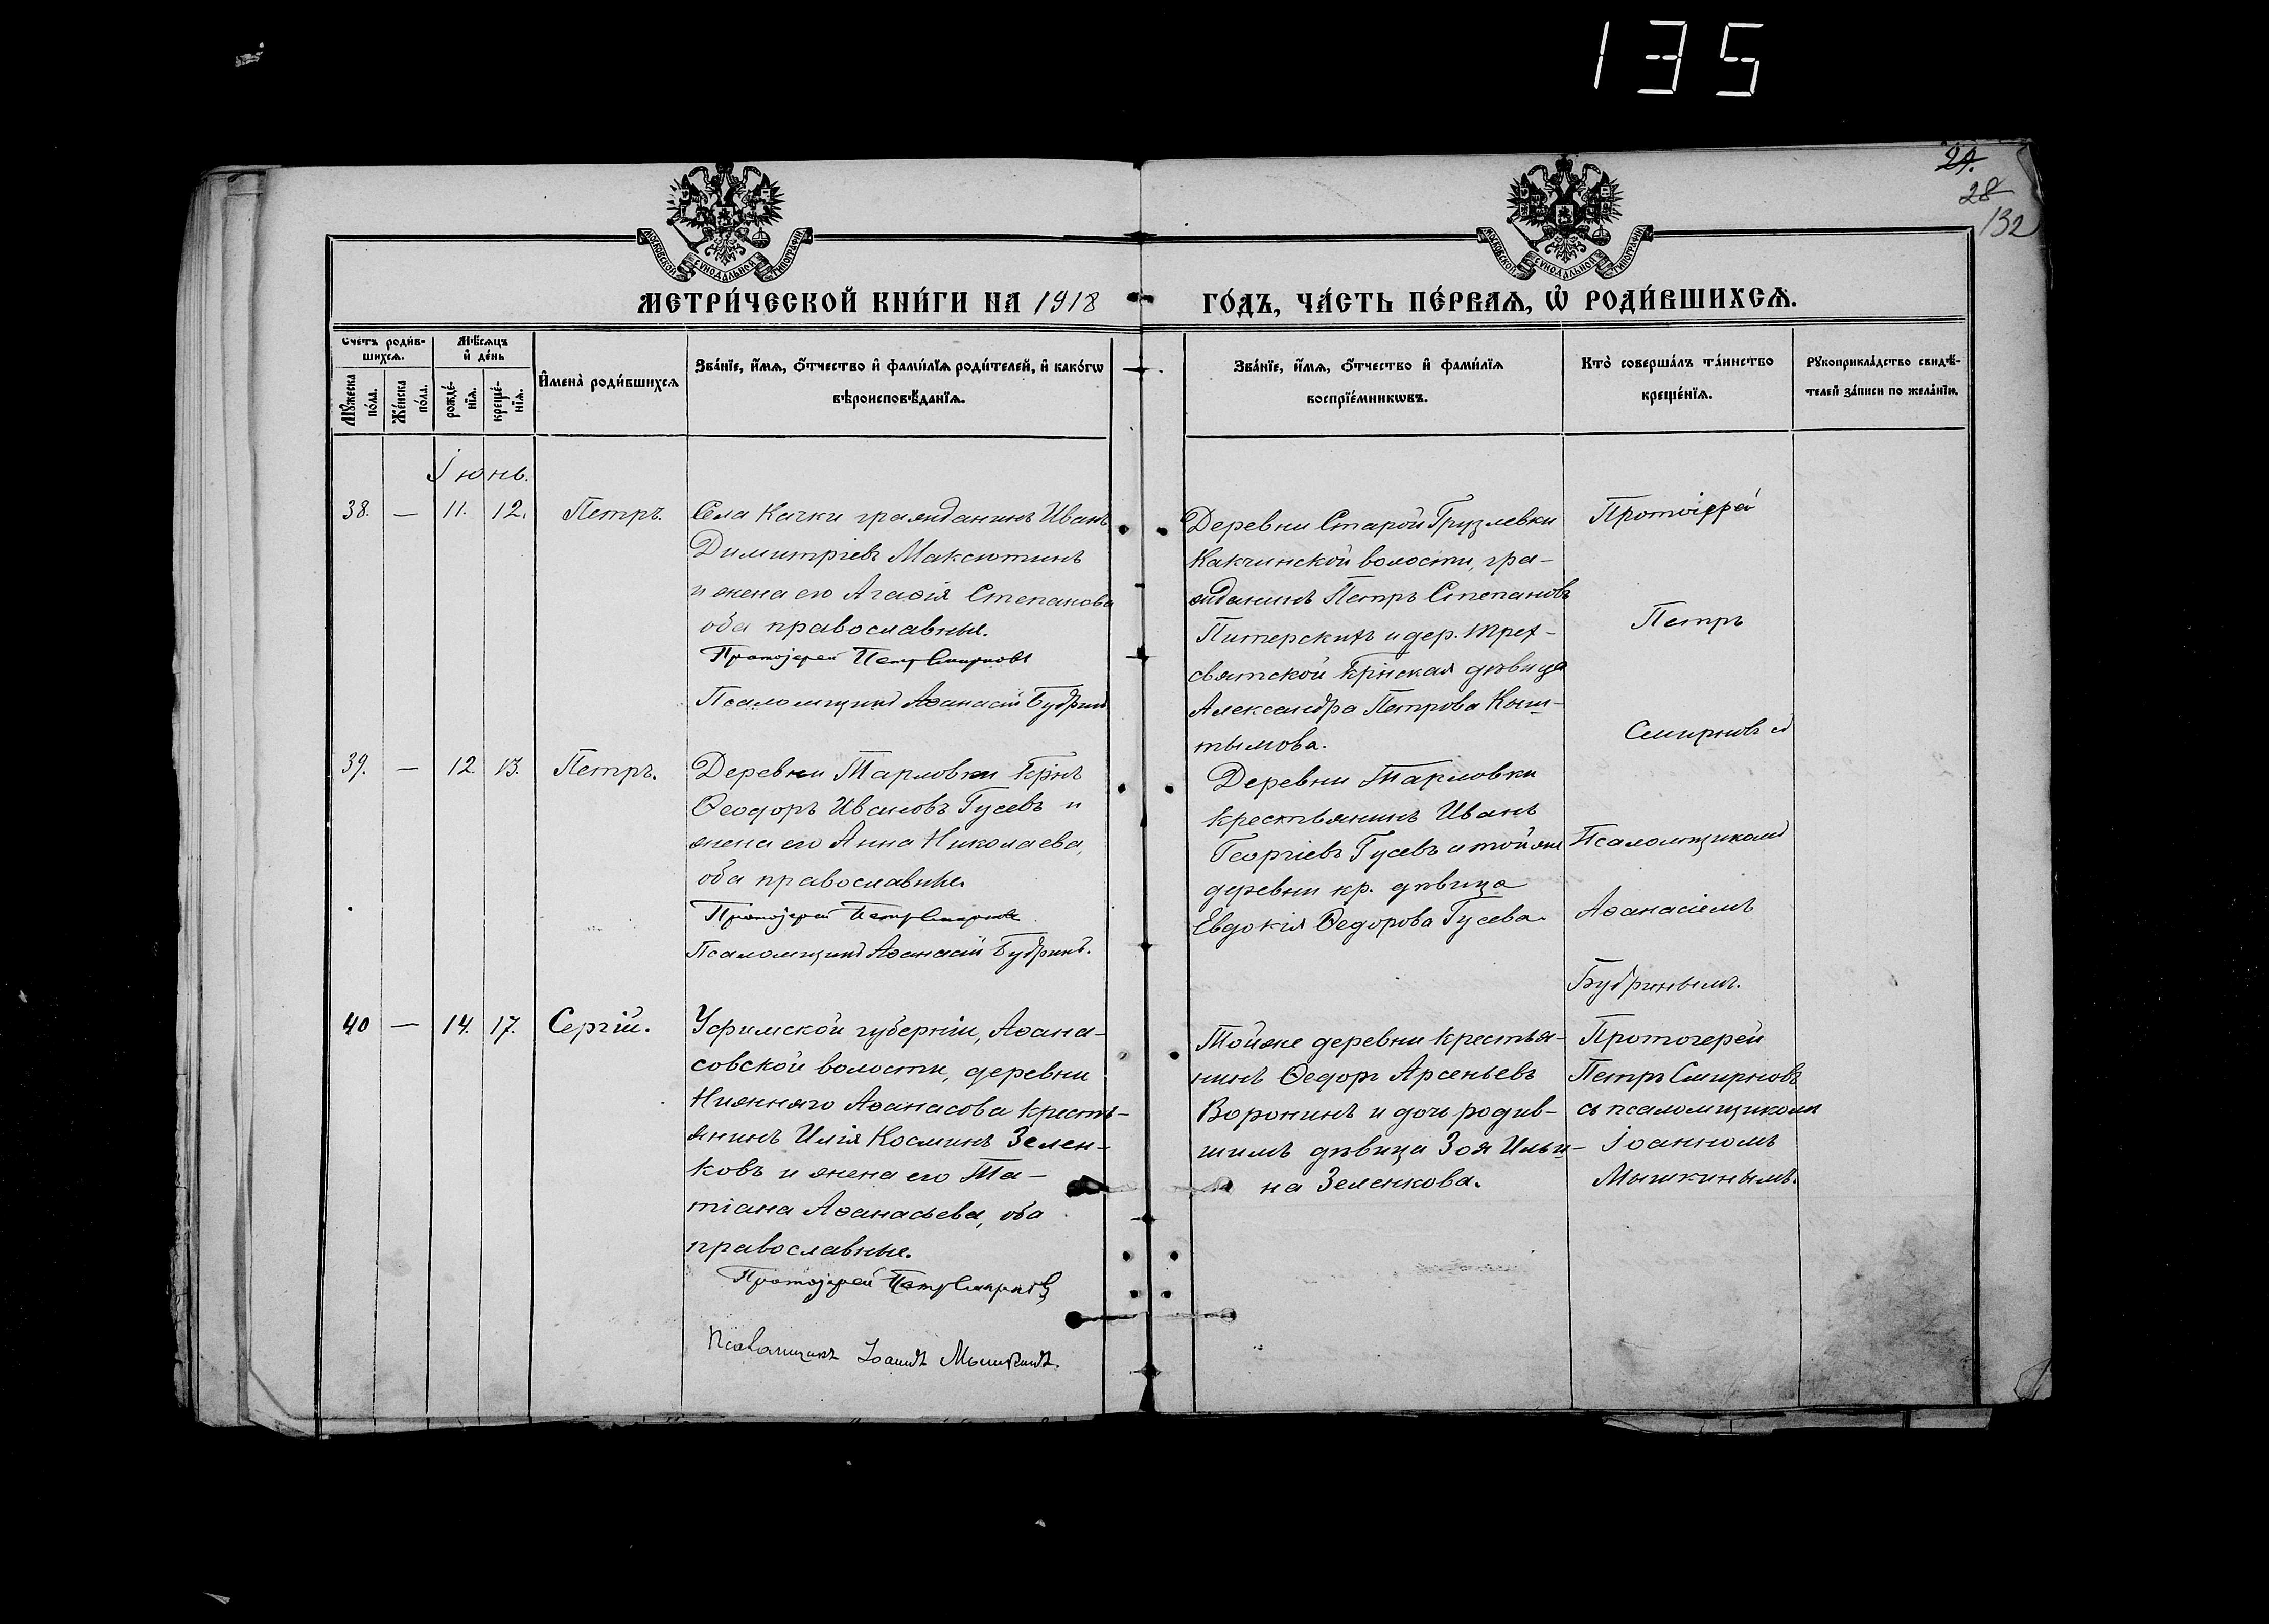 135
29.
28
132
МОСКОВСКОЙ СѴНОДАЛЬНОЙ ТИПОГРАФІИ
МОСКОВСКОЙ СѴНОДАЛЬНОЙ ТИПОГРАФІИ
МЕТРИ́ЧЕСКОЙ КНИ́ГИ НА 1918 ГО́ДЪ, ЧА́СТЬ ПЕ́РВАѦ, Ѡ҆ РОДИ́ВШИХСѦ.
Сче́тъ роди́в-
шихсѧ.
Мѣ́сѧцъ
и҆ де́нь
Мꙋ́жеска
по́ла.
Же́нска
по́ла.
рожде́-
нїѧ.
креще́-
нїѧ.
И҆мена̀ роди́вшихсѧ
Зва́нїе, и҆́мѧ, ѻ҆́тчество и҆ фами́лїѧ роди́телей, и҆ како́гѡ
вѣроисповѣ́данїѧ.
Зва́нїе, и҆́мѧ, ѻ҆́тчество и҆ фами́лїѧ
воспрїе́мникѡвъ.
Кто̀ соверша́лъ та́инство
креще́нїѧ.
Рꙋкоприкла́дство свидѣ́-
телей за́писи по жела́нїю.
Іюнь.
38. — 11. 12. Петръ.
Села Качки гражданинъ Иванъ
Димитріевъ Максютинъ
и жена его Агаѳія Степанова
оба православные.
Протоіерей Петръ Смирновъ
Псаломщикъ Аѳанасій Будринъ
Деревни Старой Грузлевки
Качкинской волости, гра-
жданинъ Петръ Степановъ
Питерскихъ и дер. Трех-
святской крнская дѣвица
Александра Петрова Кыш-
тымова.
Протоіерей
Петръ
Смирновъ съ
39. — 12. 13. Петръ.
Деревни Тарловки крнъ
Ѳеодоръ Ивановъ Гусевъ и
жена его Анна Николаева,
оба православные.
Протоіерей Петръ Смирновъ
Псаломщикъ Аѳанасій Будринъ.
Деревни Тарловки
крестьянинъ Иванъ
Георгіевъ Гусевъ и той же
деревни кр. дѣвица
Евдокія Ѳедорова Гусева.
Псаломщикомъ
Аѳанасіемъ
Будринымъ.
40 — 14. 17. Сергій.
Уфимской губерніи, Аѳана-
совской волости, деревни
Нижняго Аѳанасова кресть-
янинъ Илія Косминъ Зелен-
ковъ и жена его Та-
тіана Аѳанасьева, оба
православные.
Протоіерей Петръ Смирновъ
Псаломщикъ Іоаннъ Мышкинъ.
Той же деревни крестья-
нинъ Ѳедоръ Арсеньевъ
Воронинъ и дочь родив-
шимъ дѣвица Зоя Ильи-
на Зеленкова.
Протоіерей
Петръ Смирновъ
съ псаломщикомъ
Іоанномъ
Мышкинымъ.